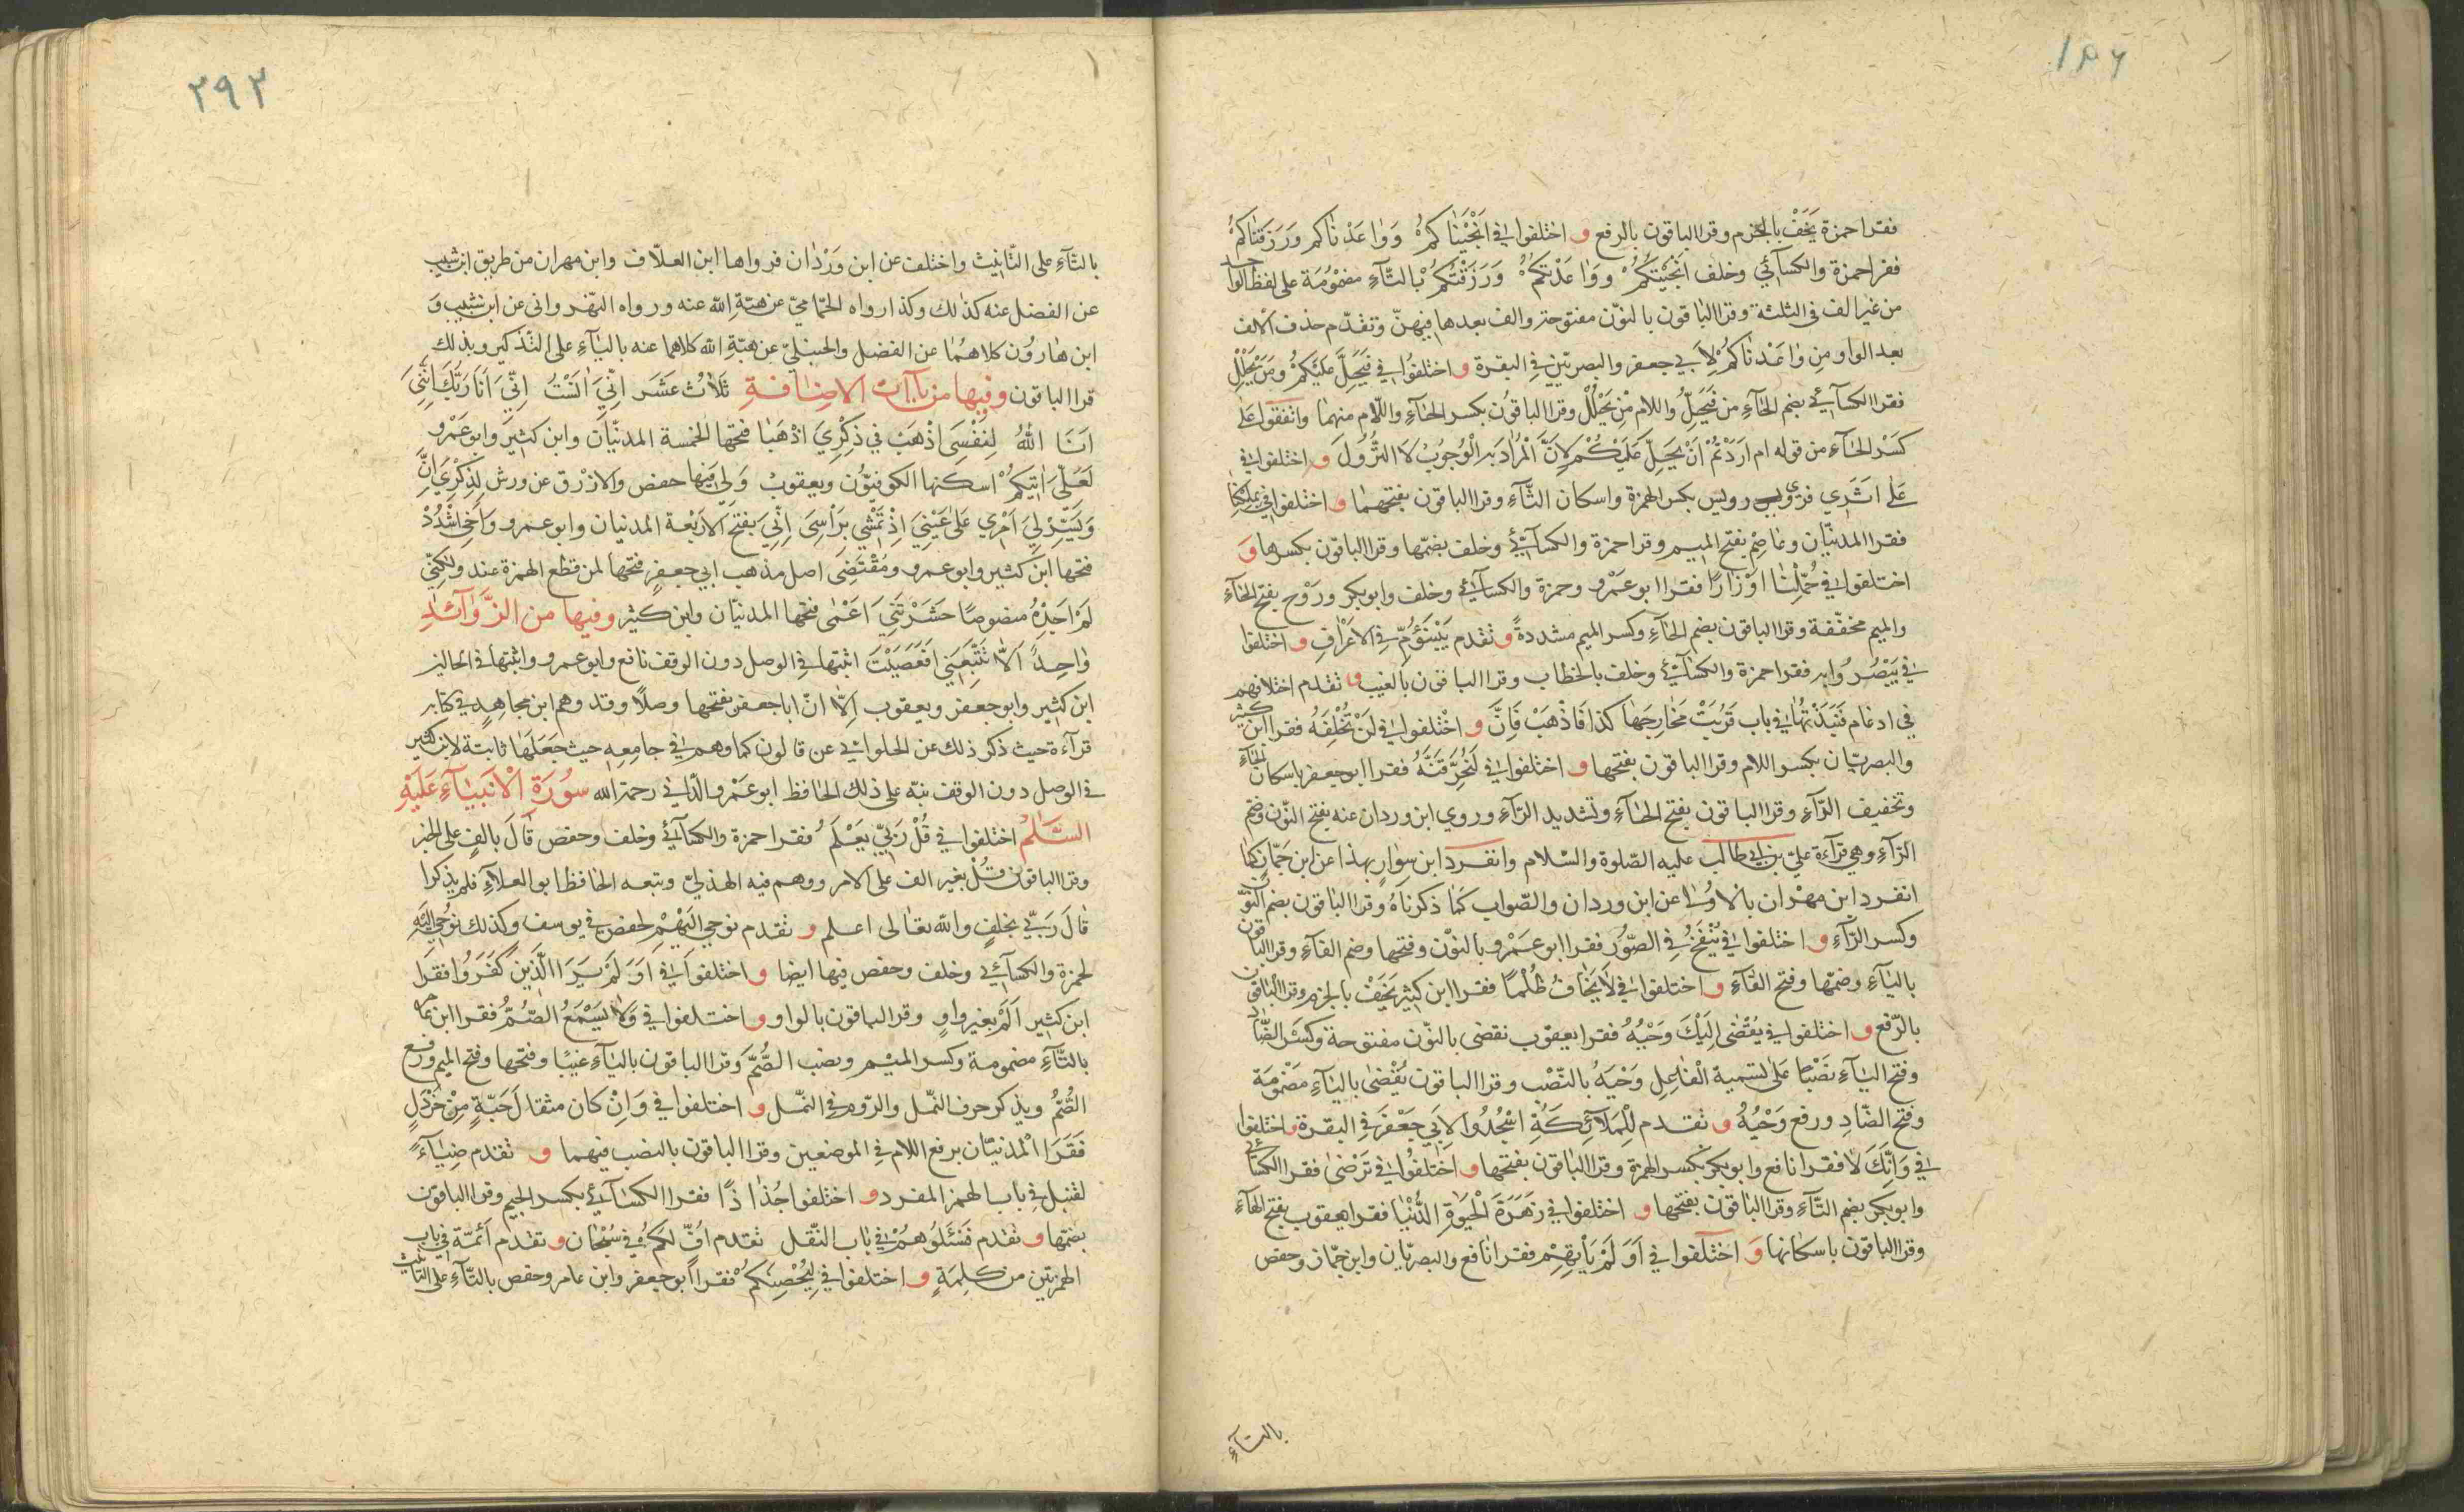 ١٨٦
فقرا حمزة يَخَفْ بالجزم وقرا الباقون بالرفع و اختلفوا في اَنْجَيْنَاكُمْ وَوَاعَدْنَاكُمْ وَرَزَقْنَاكُمْ
فقرا حمزة والكسآئي وخلف اَنْجَيْتُكُمْ ووَاعَدْتُكُمْ وَرَزَقْتُكُمْ بالتّآءِ مضمُومَة على لفظ الواحد
من غير الف في الثلثة وقرا الباقون بالنوّن مفتوحة والف بعدها فيهنّ وتقدّم حذف الالف
بعد الواو من وٰاعَدْنٰاكُمْ لِاَبي جعفر والبصريّين في البقرة و اختلفُوا في فَيَحِلَّ عَلَيْكُمْ وَمَنْ يَحْلِلْ
فقرا الكسآئي بضم الحآءِ من فَيَحِلَّ واللام مِنْ يَحْلُلْ وقرا الباقون بكسر الحآءِ واللّام منهما واتّفقوا عَلٰى
كَسْر الحآء من قوله ام اَرَدْتُمْ اَنْ يَحِلَّ عَلَيْكُمْ لِاَنَّ المُرادَ بهِ الْوُجُوبُ لَا النُّزُولَ و اختلفوا في
عَلٰى اَثَرِي فروي رويس بكسر الهمزة واسكان الثّآءِ وقرا الباقون بفتحهما و اختلفوا في بِمِلْكِنا
فقرا المدنيّان وعَاصِم بفتح الميم وقرا حمزة والكسآئي وخلف بضمّها وقرا الباقون بكسرها وَ
اختلفوا في حُمِّلْنٰا اَوْزٰارًا فقرا ابو عَمْرو وحمزة والكسآئي وخلف وابو بكر ورَوْح بفتح الحآءِ
والميم مخفّفة وقرا الباقون بضم الحآءِ وكسر الميم مشددةً و تقدم يَبْنَؤُمّ في الاعْرٰافِ و اختلفوا
في يَبْصُرُوا بِه فقرا حمزة والكسٰآئي وخلف بالخطاب وقرا الباقون بالغيب و تقدم اختلافهم
في ادغام فَنَبَذْتُهَا في باب قَرُبَتْ مَخٰارِجَهٰا كذا فَاذْهَبْ فَاِنَّ و اخْتلفوا في لَنْ تُخْلِفَهُ فقرا ابن كثير
والبصريّان بكسر اللام وقرا الباقون بفتحها و اختلفوا في لَنُحَرِّقَنَّهُ فقرا ابو جعفر باسكان الحآءِ
وتخفيف الرّآءِ وقرا الباقون بفتح الحٰآءِ وتشديد الرّآءِ وروي ابن وردان عنه بفتح النّون وضم
الرّآءِ وهي قرآءة عليّ بن ابي طالب عليه الصّلوة والسّلام وانفرد ابن سوارٍ بهذا عن ابن جَمّاز كمٰا
انفرد ابن مهْران بالاولى عن ابن وردان والصّواب كَمٰا ذكرناهُ وقرا البٰاقون بضم النّون
وكسر الرّآءِ و اختلفوا في يُنْفَخُ في الصّوُر فقرا ابو عَمْرو بالنوّن وفتحها وضم الفآءِ وقرا الباقون
بالياءِ وضمّها وفتح الفآءِ و اختلفوا في لَا يَخٰافُ ظُلْمًا فقرا ابن كثير يَخَفْ بالجزم وقرا البٰاقون
بالرّفع و اختلفوا في يُقْضٰى اِلَيْكَ وَحْيُهُ فقرا يعقوب نقضى بالنوّن مفتوحة وكَسْر الضّاد
وفتح اليٰآءِ نَصْبًا عَلٰى تسمية الْفٰاعِلِ وَحْيَهُ بالنّصْب وقرا الباقون يُقْضىٰ باليآءِ مَضْمُومَة
وفتح الضّادِ ورفع وَحْيُهُ و تقدم لِلْمَلآَئِكَةِ اسْجُدُوا لِاَبي جَعْفَر في البقرة و اختلفوا
في وَاَنَّكَ لَا فقرا نافع وابو بكر بكسر الهمزة وقرا البٰاقون بفتحها و اختلفُوا في تَرْضىٰ فقرا الكسٰآئي
وابو بكر بضم التّآءِ وقرا البٰاقون بفتحها و اختلفوا في زَهَرَةَ الْحَيٰوةِ الدُّنْيٰا فقرا يعقوب بفتح الهآءِ
وقرا الباقون باسكانها وَ اختلفوا في اَوَلَمْ يَاْتِهِمْ فقرا نافع والبصريّان وابن جمّاز وحفص
بالتآءِ
٢٩٢
بالتّآءِ على التّانيث واختلف عن ابن وَرْدٰان فرواها ابن العلّاف وابن مهران من طريق ابن شبيب
عن الفضل عنه كذٰلك وكذا رواه الحمّاميّ عن هبة الله عنه ورواه النهّرواني عن ابن شبيب وَ
ابن هارُون كلاهُمٰا عن الفضل والحنبليّ عن هبَةِ الله كلاهما عنه باليٰآءِ على التّذكير وبذلك
قرا الباقون وفيها من يآءات الاضافة ثَلٰاثُ عَشَر اِنّيَ اٰنَسْتُ اِنّيَ اَنَا رَبُّكَ اِنَّنِيَ
اَنَا اللهُ لِنَفْسِيَ اذْهَبْ فِي ذِكْرِيَ اذْهَبٰا فتحها الخمسة المدنيّان وابن كثير وابو عَمْرو
لَعَلّيَ اٰتِيكُمْ اسكنها الكوفيّوُن ويعقوبُ وَلِيَ فيها حفص والازْرق عن ورش لِذِكْرِيَ اِنَّ
وَيَسِّرْ لِيَ اَمْرِي عَلىٰ عَيْنِيَ اِذْ تَمْشِي بِرَاْسِيَ اِنِّيَ بفتح الاَرْبَعة المدنيان وابو عمرو وَاَخِيَ اشْدُدْ
فتحها ابن كثير وابو عمرو ومُقْتَضٰى اصل مذهب ابي جعفرٍ فتحها لمن قطع الهمزة عنه ولكِنّي
لَمْ اَجِدْهُ منصوصًا حَشَرْتَنِيَ اَعْمٰى فتحها المدنيّان وابن كثير وفيها من الزَّوَآئد
وٰاحِدةً اَلّا تَتَّبِعَنِي اَفَعَصَيْتَ اثبتها في الوصل دون الوقف نافع وابو عمرو واثبتها في الحالين
ابن كثير وابو جعفر ويعقوب اِلّا انّ ابا جعفر يفتحها وصلًا وقد وهم ابن مجاهِدٍ في كتابه
قرآءة حيث ذكر ذلك عن الحلواني عن قالون كما وهم في جامِعِه حيث جَعَلَهٰا ثابتة لابن كثير
في الوصل دون الوقف نبّه على ذلك الحٰافظ ابو عَمْرو الدّاني رحمة الله سُورَةُ الْاَنْبِيٰآءِ عَلَيْهِمُ
السَّلٰمُ اختلفوا في قُلْ رَبّي يَعْلَمُ فقرا حمزة والكسآئي وخلف وحفص قَالَ بالفٍ على الخبر
وقرا الباقون قُلْ بغير الف على الامر ووهم فيه الهذليّ وتبعه الحٰافظ ابو العلآءِ فلم يذكرا
قٰالَ رَبِّي بخلفٍ والله تعٰالى اعلم و تقدم نوحي اليْهِمْ لحفص في يوسف وكذلك نوُحي اِلَيْهِ
لحمزة والكسآئي وخلف وحفص فيها ايضا و اختلفوا في اَوَ لَمْ يَرَ الَّذِينَ كَفَرُوا فقرا
ابن كثير اَلَمْ بغير واوٍ وقرا الباقون بالواو و اختلفوا في وَلَا يَسْمَعُ الصُّمُّ فقرا ابن عامر
بالتّآءِ مضمومة وكسر الميم ونصب الصُّمّ وقرا الباقون باليآءِ غيبًا وفتحها وفتح الميم ورفع
الصُّمُّ ويذكر حرف النّمل والرّوم في النّمل و اختلفوا في وَاِنْ كان مثقال حَبّةٍ مِنْ خَرْدَلٍ
فَقَرَا المْدنيّان برفع اللام في الموضعين وقرا الباقون بالنصب فيهما و تقدم ضِيٰآءً
لقنبل في باب الهمز المفرد و اختلفوا جُذٰاذًا فقرا الكسٰآئي بكسر الجيم وقرا الباقون
بضمّها و تقدم فَسْئَلُوهُمْ في باب النّقل تقدم اُفٍّ لكُمْ في سُبْحٰان و تقدم اَئمّة في باب
الهمزتين من كلِمَةٍ و اختلفوا في لِتُحْصِنَكُمْ فقرا ابو جعفر وابن عامر وحفص بالتّآءِ على التانيث